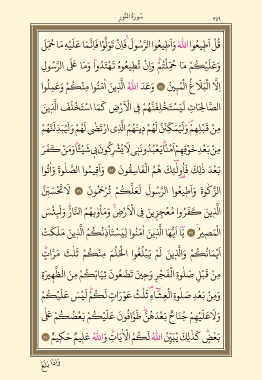 سُورَةُ النُّورِ
٣٥٦
قُلْ اَط۪يعُوا اللّٰهَ وَاَط۪يعُوا الرَّسُولَۚ فَاِنْ تَوَلَّوْا فَاِنَّمَا عَلَيْهِ مَا حُمِّلَ
وَعَلَيْكُمْ مَا حُمِّلْتُمْۜ وَاِنْ تُط۪يعُوهُ تَهْتَدُواۜ وَمَا عَلَى الرَّسُولِ
اِلَّا الْبَلَاغُ الْمُب۪ينُ ٥٤ وَعَدَ اللّٰهُ الَّذ۪ينَ اٰمَنُوا مِنْكُمْ وَعَمِلُوا
الصَّالِحَاتِ لَيَسْتَخْلِفَنَّهُمْ فِي الْاَرْضِ كَمَا اسْتَخْلَفَ الَّذ۪ينَ
مِنْ قَبْلِهِمْۖ وَلَيُمَكِّنَنَّ لَهُمْ د۪ينَهُمُ الَّذِي ارْتَضٰى لَهُمْ وَلَيُبَدِّلَنَّهُمْ
مِنْ بَعْدِ خَوْفِهِمْ اَمْنًاۜ يَعْبُدُونَن۪ي لَا يُشْرِكُونَ ب۪ي شَيْـًٔاۜ وَمَنْ كَفَرَ
بَعْدَ ذٰلِكَ فَاُو۬لٰٓئِكَ هُمُ الْفَاسِقُونَ ٥٥ وَاَق۪يمُوا الصَّلٰوةَ وَاٰتُوا
الزَّكٰوةَ وَاَط۪يعُوا الرَّسُولَ لَعَلَّكُمْ تُرْحَمُونَ ٥٦ لَا تَحْسَبَنَّ
الَّذ۪ينَ كَفَرُوا مُعْجِز۪ينَ فِي الْاَرْضِۚ وَمَأْوٰيهُمُ النَّارُۜ وَلَبِئْسَ
الْمَص۪يرُ ٥٧ يَٓا اَيُّهَا الَّذ۪ينَ اٰمَنُوا لِيَسْتَأْذِنْكُمُ الَّذ۪ينَ مَلَكَتْ
اَيْمَانُكُمْ وَالَّذ۪ينَ لَمْ يَبْلُغُوا الْحُلُمَ مِنْكُمْ ثَلٰثَ مَرَّاتٍۜ
مِنْ قَبْلِ صَلٰوةِ الْفَجْرِ وَح۪ينَ تَضَعُونَ ثِيَابَكُمْ مِنَ الظَّه۪يرَةِ
وَمِنْ بَعْدِ صَلٰوةِ الْعِشَٓاءِ۠ ثَلٰثُ عَوْرَاتٍ لَكُمْۜ لَيْسَ عَلَيْكُمْ
وَلَا عَلَيْهِمْ جُنَاحٌ بَعْدَهُنَّۜ طَوَّافُونَ عَلَيْكُمْ بَعْضُكُمْ عَلٰى
بَعْضٍۜ كَذٰلِكَ يُبَيِّنُ اللّٰهُ لَكُمُ الْاٰيَاتِۜ وَاللّٰهُ عَل۪يمٌ حَك۪يمٌ ٥٨
وَاِذَا بَلَغَ